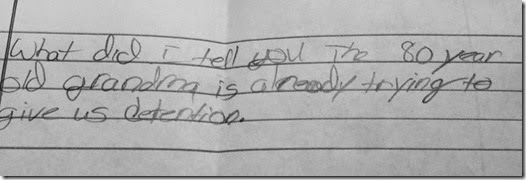 What did i tell you The 80 year
old grandma is already trying to
give us detention.